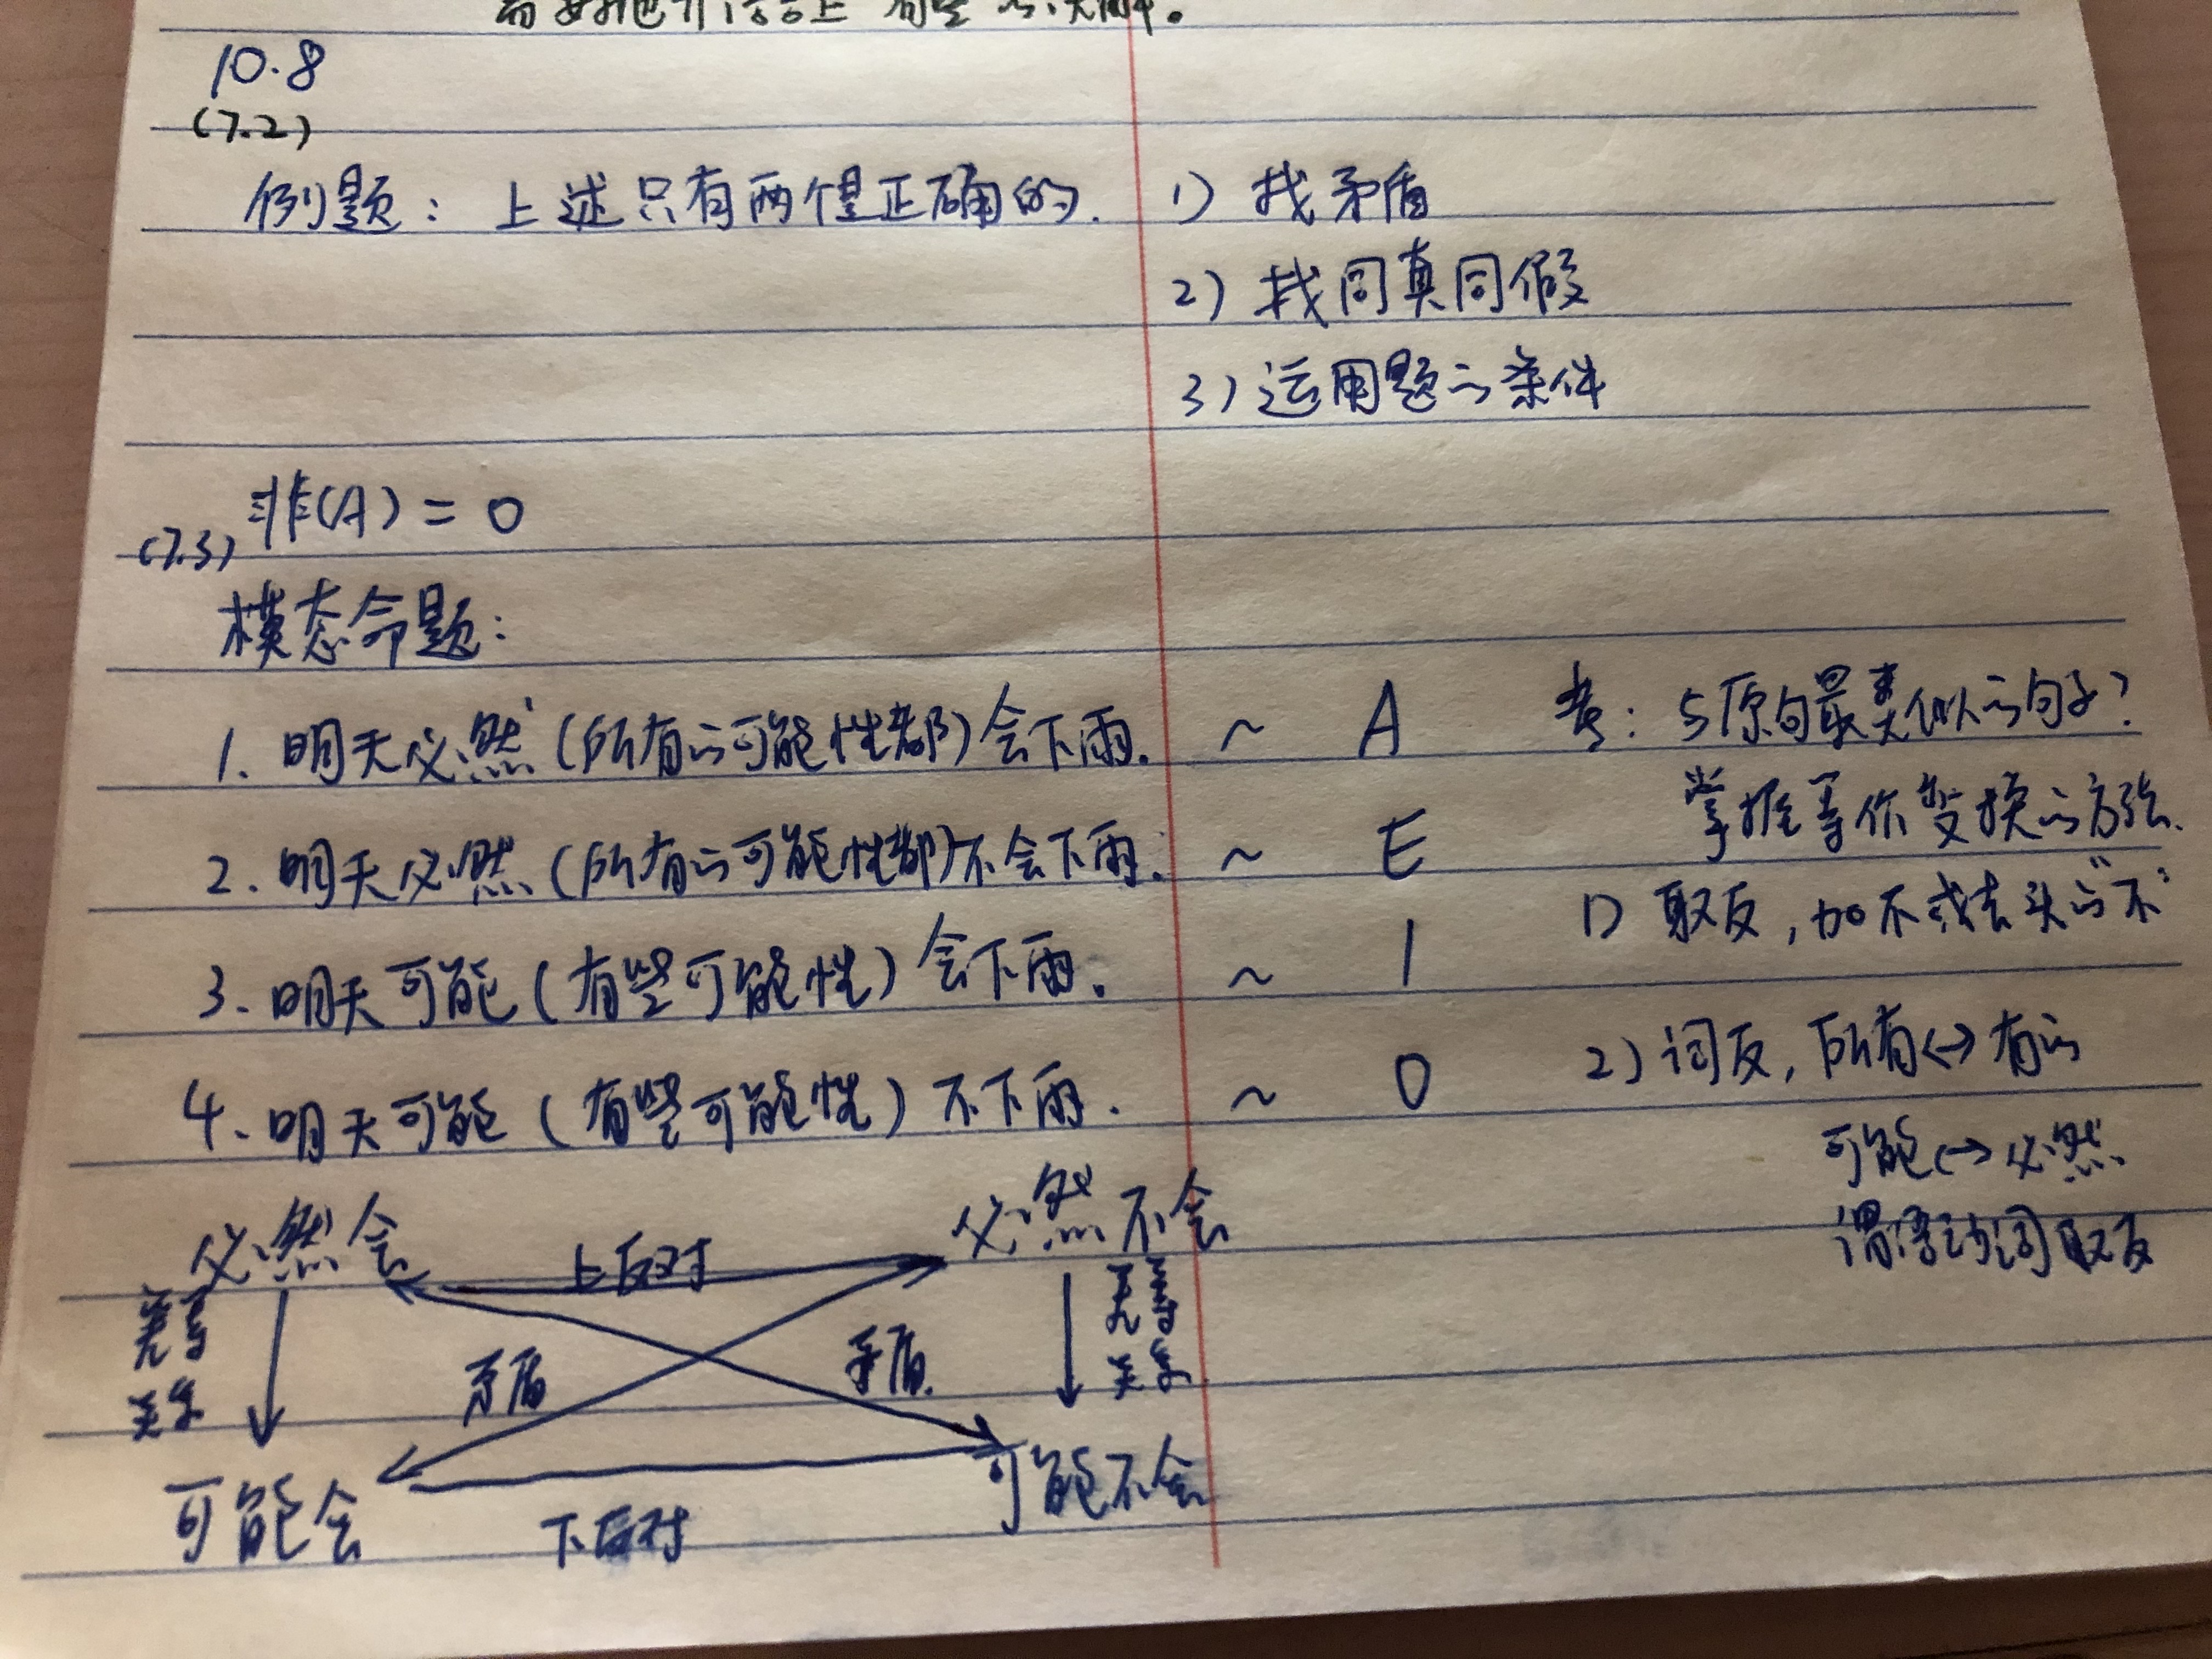 10.8
(7.2)
例题：上述只有两个是正确的. 1) 找矛盾
2) 找同真同假
3) 运用题的条件
非(A) = O
(7.3)
模态命题：
1. 明天必然(所有的可能性都)会下雨. ~ A
2. 明天必然(所有的可能性都)不会下雨. ~ E
3. 明天可能(有些可能性)会下雨. ~ I
4. 明天可能(有些可能性)不下雨. ~ O
考：与原句最类似的句子?
掌握等价变换的方法.
1) 取反，加不或去头的"不"
2) 词反，所有↔有的
可能↔必然
谓语动词取反
必然会 上反对 必然不会
差等关系 矛盾 矛盾 差等关系
可能会 下反对 可能不会